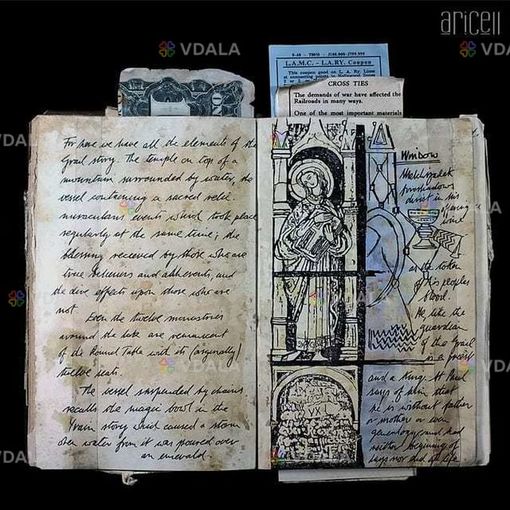 aricell
VDALA
L.A.M.C. - L.A.RY. Coupon
CROSS TIES
The demands of war have affected the
Railroads in many ways.
One of the most important materials
ONE
For here we have all the elements of the
Grail story. The temple on top of a
mountain surrounded by water, the
vessel containing a sacred relic
miraculous events which took place
regularly at the same time; the
blessing received by those who are
true believers and
the dire effects upon those who are
not.
Even the twelve monasteries
around the lake are reminiscent
of the Round Table with its (originally)
twelve seats.
The vessel suspended by chains
recalls the magic bowl in the
story which caused a storm
when water from it was poured over
an emerald.
Window
Melchizedek
foreshadows
Christ in his
wine
as the token
of his peoples
blood.
He, like the
guardian
of the Grail
is a priest
and a King. St Paul
says of him that
he is without father
or mother or even
genealogy and had
neither beginning of
days nor end of life